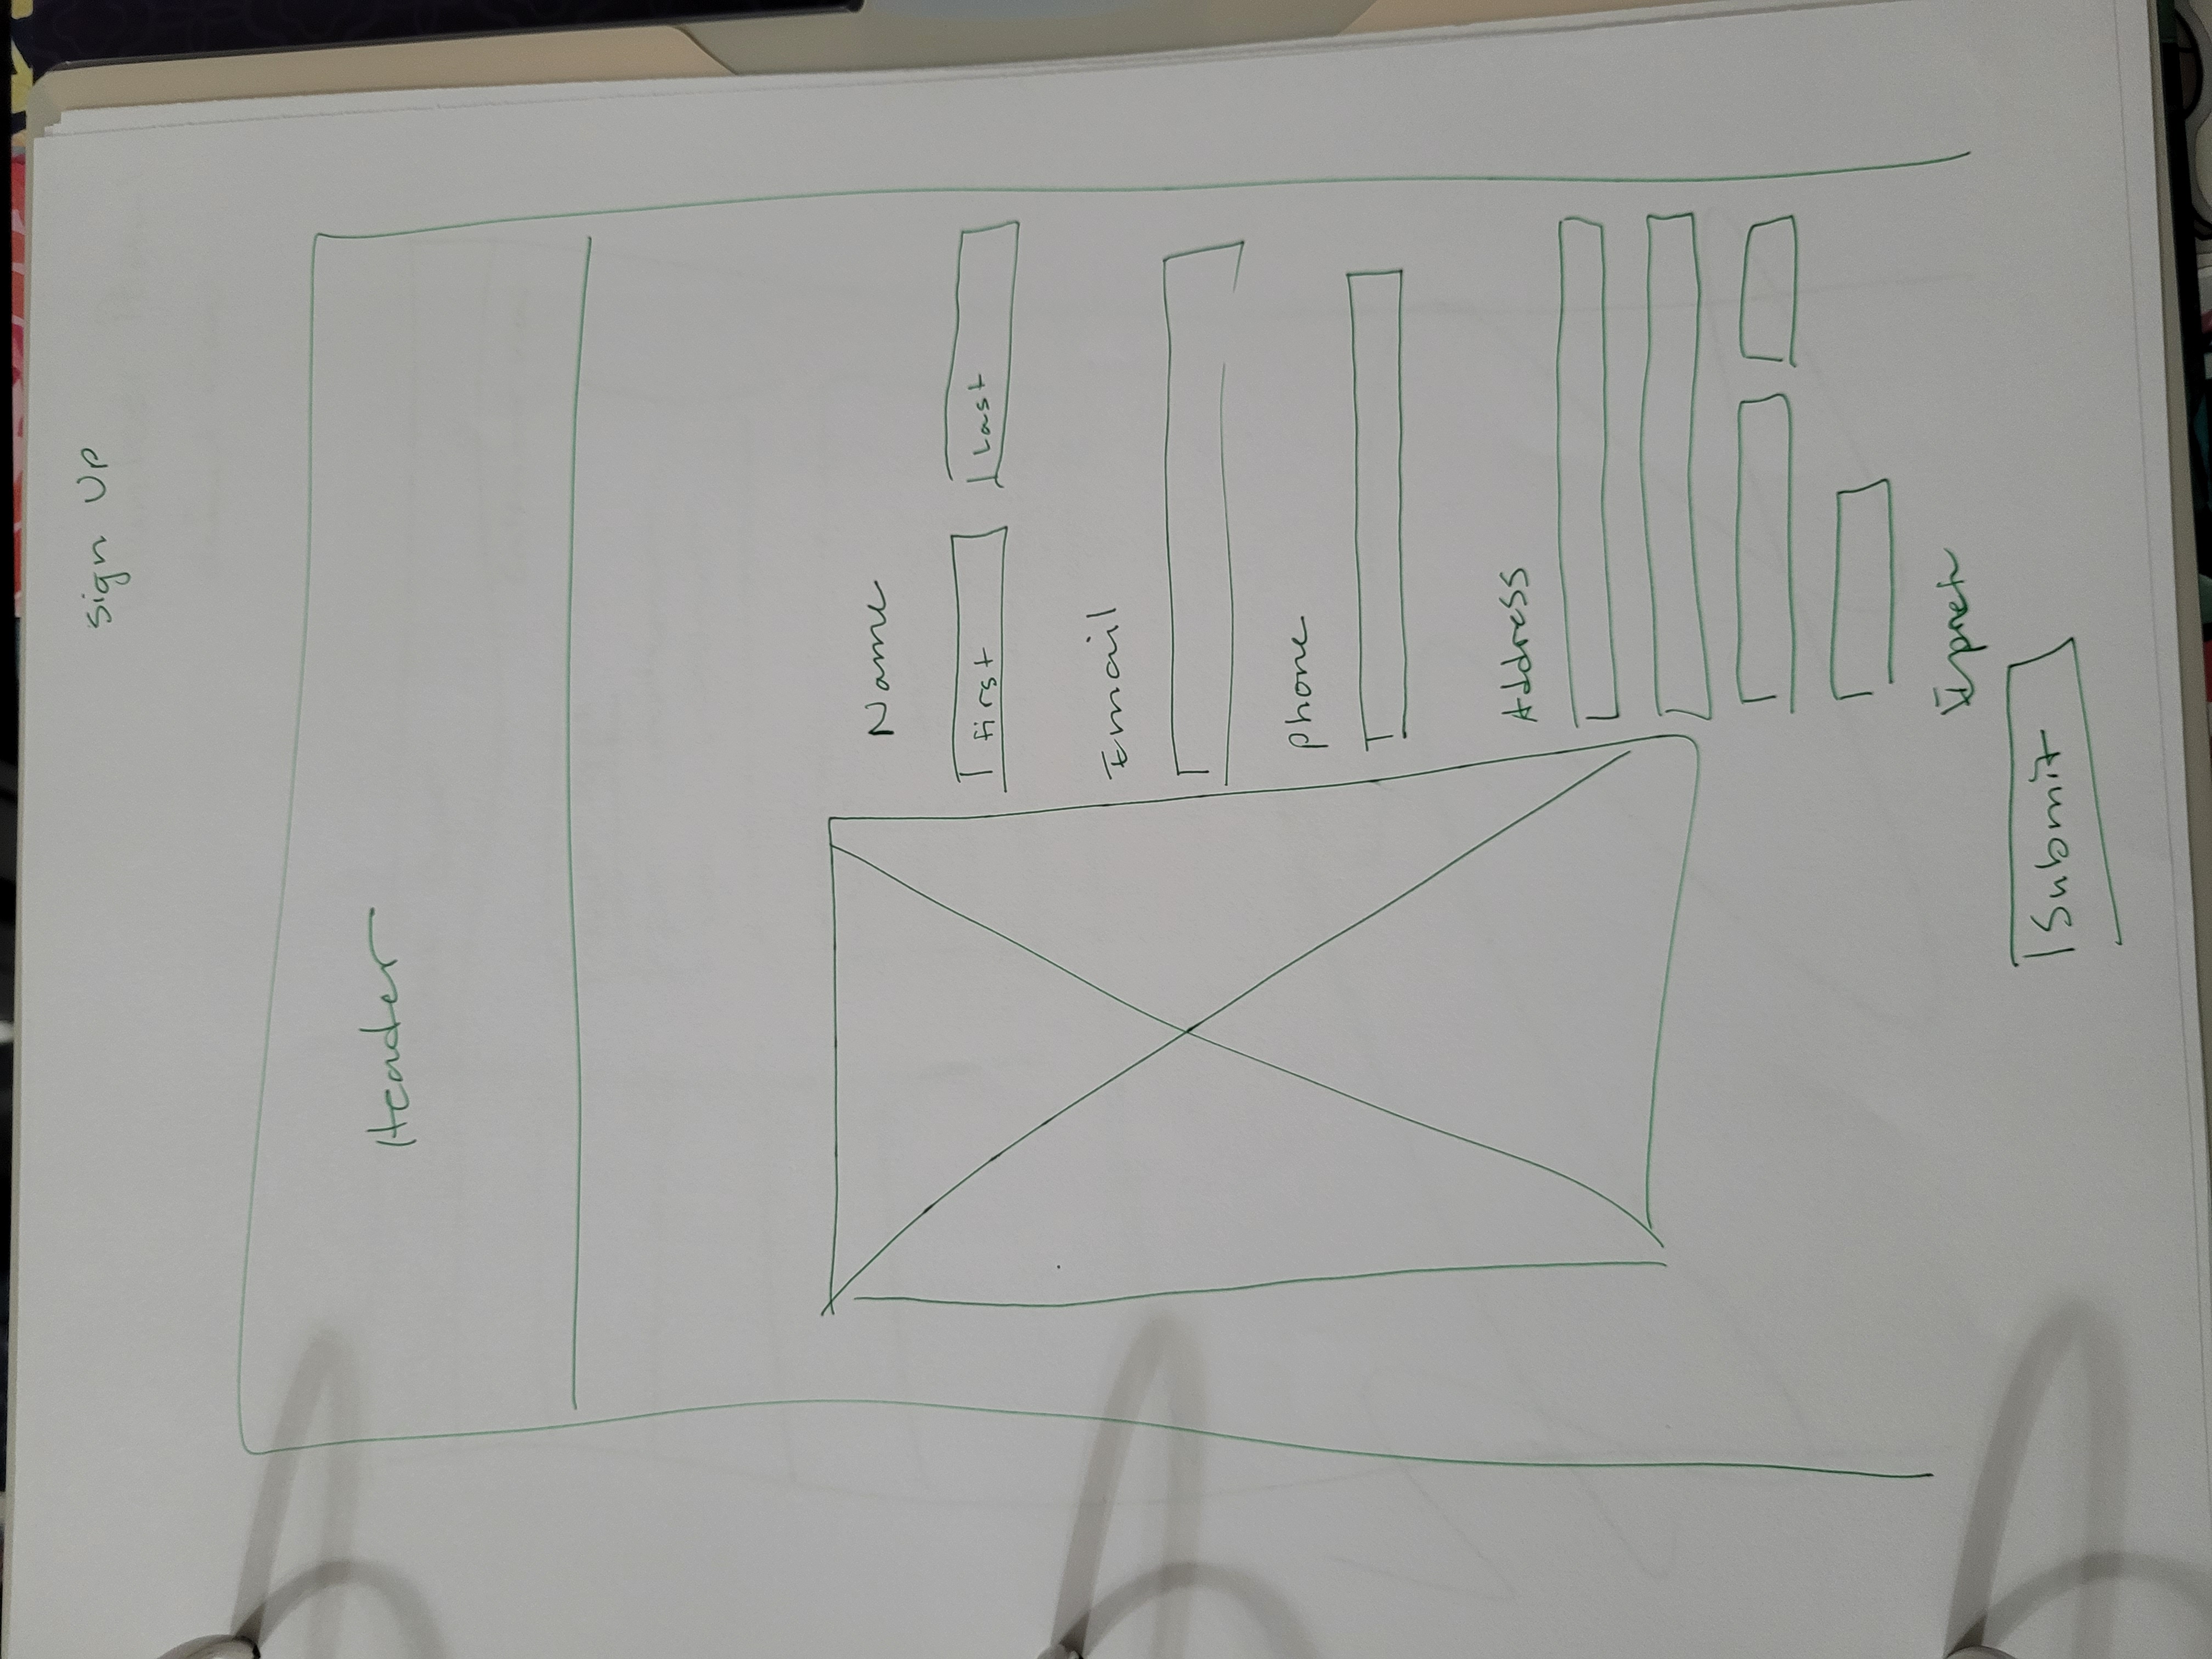 Sign Up
Header
Name
first Last
Email
phone
Address
Submit